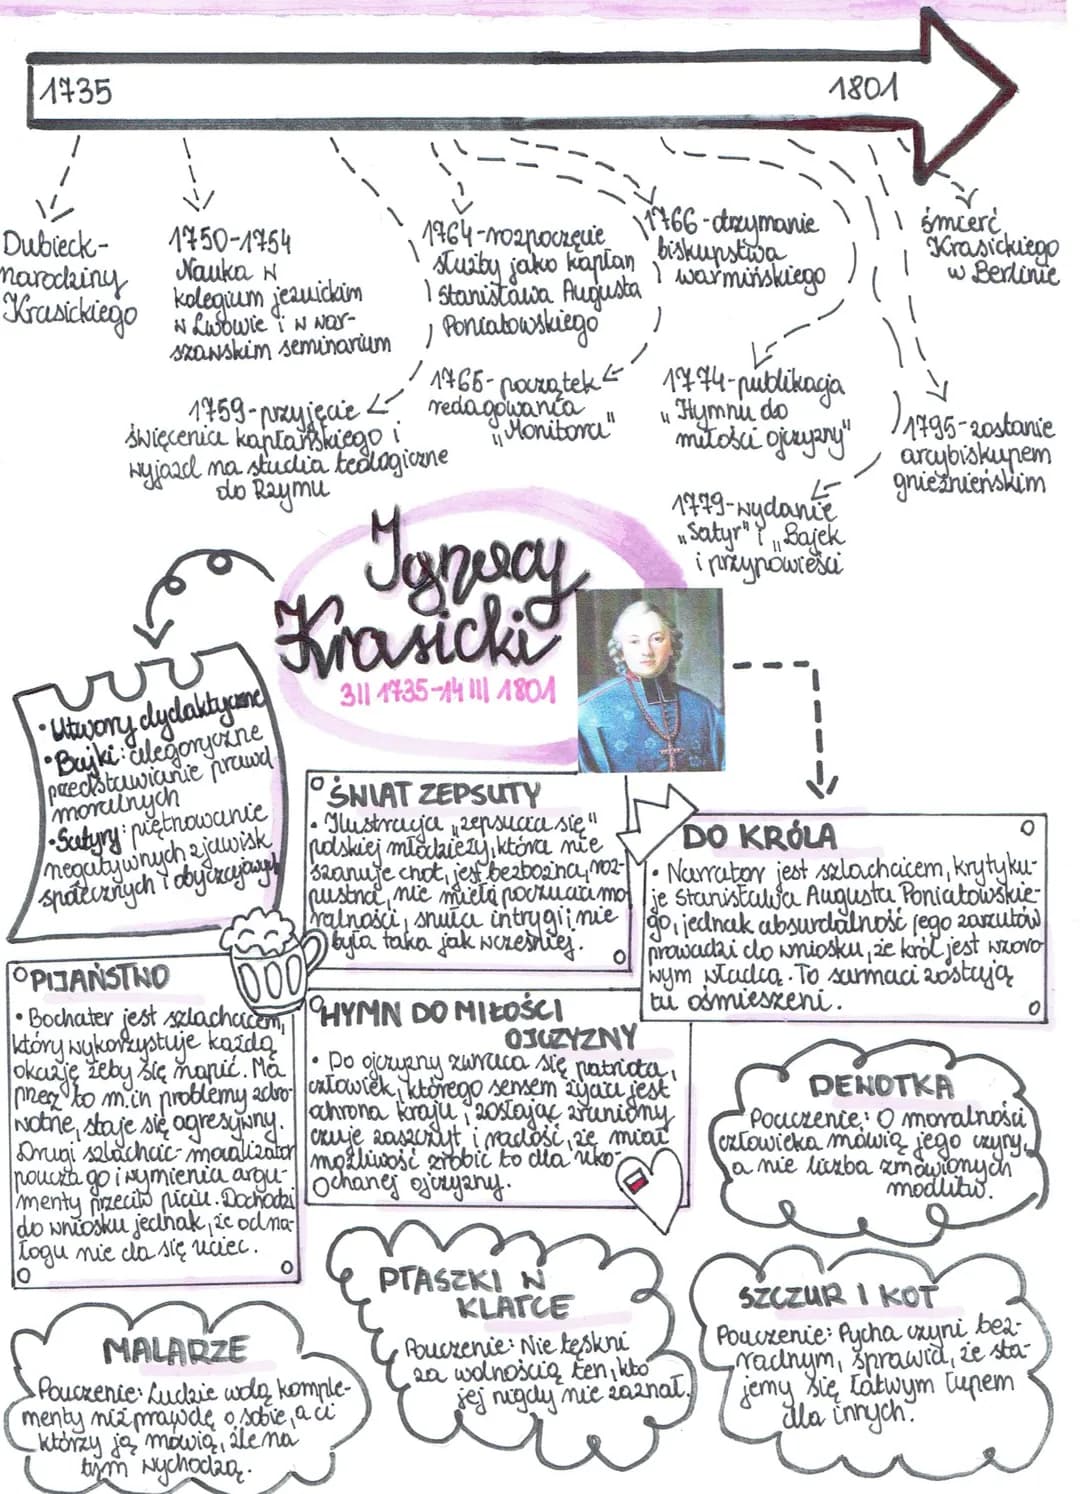 1735
1801
Dubieck-
narodziny
Krasickiego
1750-1754
Nauka w
kolegium jezuickim
w Lwowie i w war-
szawskim seminarium
1759-przyjęcie
święcenia kapłańskiego i
wyjazd na studia teologiczne
do Rzymu
1764-rozpoczęcie
służby jako kapłan
Stanisława Augusta
Poniatowskiego
1765-początek
redagowania
"Monitora"
1766-otrzymanie
biskupstwa
warmińskiego
1774-publikacja
"Hymnu do
miłości ojczyzny"
1779-wydanie
"Satyr" i "Bajek
i przypowieści
1795-zostanie
arcybiskupem
gnieźnieńskim
śmierć
Krasickiego
w Berlinie
Ignacy
Krasicki
3II 1735-14 III 1801
• Utwory dydaktyczne
• Bajki: alegoryczne
przedstawianie prawd
moralnych
• Satyry: piętnowanie
negatywnych zjawisk
społecznych i obyczajowych
ŚWIAT ZEPSUTY
• Ilustracja "zepsucia się"
polskiej młodzieży, która nie
szanuje cnót, jest bezbożna, roz-
pustna, nie miała poczucia mo
ralności, snuła intrygi i nie
była taka jak wcześniej.
DO KRÓLA
• Narrator jest szlachcicem, krytyku-
je Stanisława Augusta Poniatowskie-
go, jednak absurdalność jego zarzutów
prowadzi do wniosku, że król jest wzoro
wym władcą. To sarmaci zostają
tu ośmieszeni.
PIJAŃSTWO
• Bochater jest szlachcicem,
który wykorzystuje każdą
okazję żeby się napić. Ma
przez to m.in problemy zdro-
wotne, staje się agresywny.
Drugi szlachcic-moralizator
poucza go i wymienia argu-
menty przeciw piciu. Dochodzi
do wniosku jednak, że od na-
łogu nie da się uciec.
HYMN DO MIŁOŚCI
OJCZYZNY
• Do ojczyzny zwraca się patriota,
człowiek, którego sensem życia jest
ochrona kraju, zostając zraniony
czuje zaszczyt i radość, że miał
możliwość zrobić to dla uko-
chanej ojczyzny.
DEWOTKA
Pouczenie: O moralności
człowieka mówią jego czyny,
a nie liczba zmówionych
modlitw.
PTASZKI W
KLATCE
Pouczenie: Nie tęskni
za wolnością ten, kto
jej nigdy nie zaznał.
SZCZUR I KOT
Pouczenie: Pycha czyni bez-
radnym, sprawia, że sta-
jemy się łatwym łupem
dla innych.
MALARZE
Pouczenie: Ludzie wolą komple-
menty niż prawdę o sobie, a ci
którzy ją mówią, źle na
tym wychodzą.